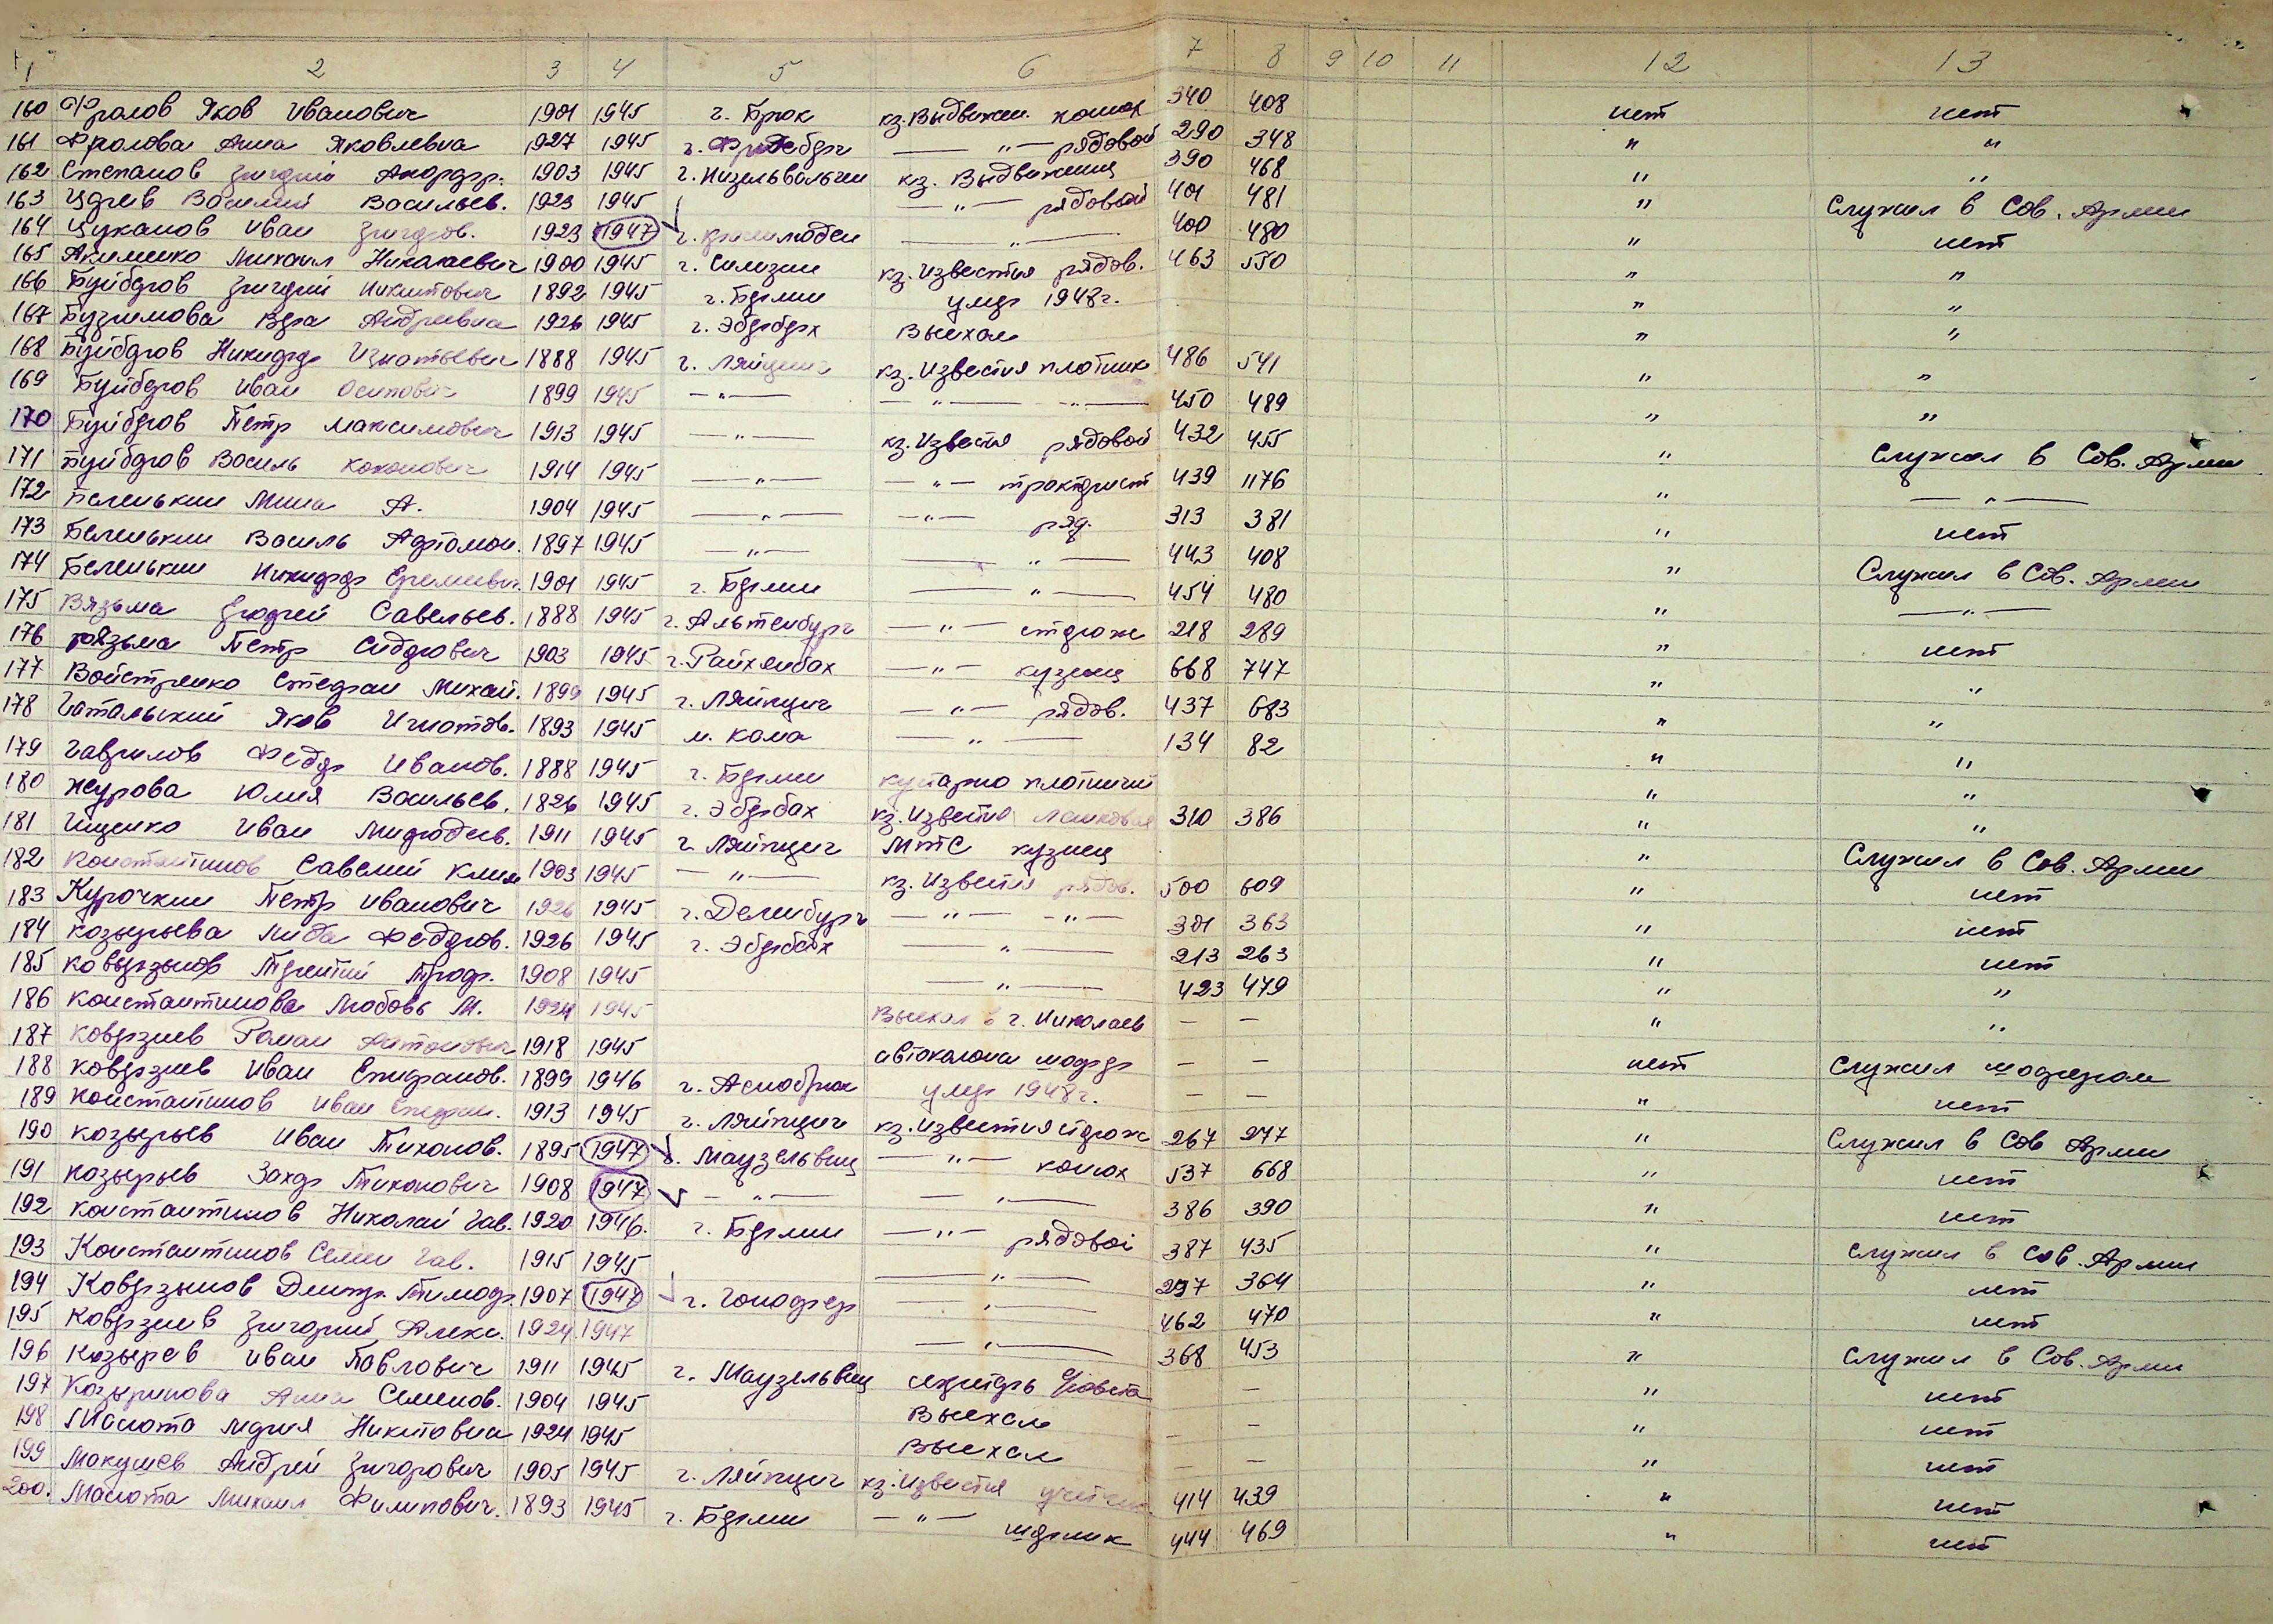 1 2 3 4 5 6 7 8 9 10 11 12 13
160 Фролов Яков Иванович 1901 1945 г. Брюк кз. Выдвижен. конюх 340 408 нет нет
161 Фролова Анна Яковлевна 1927 1945 г. — " — рядовой 290 348 " "
162 Степанов 1903 1945 кз. Выдвиженец 390 468 " "
163 Василий Васильев. 1923 1945 — " — рядовой 401 481 " Служил в Сов. Армии
164 Цуканов Иван 1923 1947 г. — " — 400 480 " нет
165 Акименко Михаил Николаевич 1900 1945 г. Силезии кз. Известия рядов. 463 550 " "
166 Буйберов Никитович 1892 1945 г. Берлин умер 1948 г. " "
167 Вера Андреевна 1926 1945 г. Выехал " "
168 Буйберов Никифор Игнатьевич 1888 1945 г. Ляйпциг кз. Известия плотник 486 541 " "
169 Буйберов Иван Осипович 1899 1945 — " — — " — — " — 450 489 " "
170 Буйберов Петр Максимович 1913 1945 — " — кз. Известия рядовой 432 455 " Служил в Сов. Армии
171 Буйберов Василь Кононович 1914 1945 — " — — " — тракторист 439 1176 " — " —
172 Беленькии Миша А. 1904 1945 — " — — " — ряд. 313 381 " нет
173 Беленькии Василь 1897 1945 — " — — " — 443 408 " Служил в Сов. Армии
174 Беленькии Никифор Еремеевич 1901 1945 г. Берлин — " — 454 480 " — " —
175 Вязьма Савельев. 1888 1945 г. Альтенбург — " — сторож 218 289 " нет
176 Вязьма Петр Сидорович 1903 1945 г. Райхенбах — " — кузнец 668 747 " "
177 Стефан Михай. 1899 1945 г. Ляйпциг — " — рядов. 437 683 " "
178 Гатальский Яков Игнатов. 1893 1945 м. Кама — " — 134 82 " "
179 Гаврилов Федор Иванов. 1888 1945 г. Берлин кустарно плотничий " "
180 Журова Юлия Васильев. 1826 1945 г. Эбербах кз. Известия 310 386 " "
181 Ищенко Иван 1911 1945 г. Ляйпциг МТС кузнец " Служил в Сов. Армии
182 Константинов Савелий Клим 1903 1945 — " — кз. Известия рядов. 500 609 " нет
183 Курочкин Петр Иванович 1926 1945 г. — " — — " — 301 363 " нет
184 Козырева Лида Федоров. 1926 1945 г. Эбербах — " — 213 263 " нет
185 1908 1945 — " — 423 479 " "
186 Константинова Любовь М. 1924 1945 Выехал в г. Николаев — — " "
187 Коверзнев Роман Антонович 1918 1945 автоколона шофер — — нет Служил шофером
188 Коверзнев Иван 1899 1946 г. умер 1948 г. — — " нет
189 Константинов Иван 1913 1945 г. Ляйпциг кз. Известия сторож 267 277 " Служил в Сов Армии
190 Козырьев Иван Тихонов. 1895 1947 г. Маузельвиц — " — конюх 537 668 " нет
191 Козырьев Захар Тихонович 1908 1947 — " — — " — 386 390 " нет
192 Константинов Николай Гав. 1920 1946. г. Берлин — " — рядовой 387 435 " Служил в Сов. Армии
193 Константинов Семен Гав. 1915 1945 — " — 297 364 " нет
194 Тимоф. 1907 1947 г. — " — 462 470 " нет
195 Коверзнев Григорий Алекс. 1924 1947 — " — 368 453 " Служил в Сов. Армии
196 Козырев Иван Павлович 1911 1945 г. Маузельвиц — " нет
197 Анна Семенов. 1904 1945 Выехал — — " нет
198 Масюта Мария Никитовна 1924 1945 Выехал — — " нет
199 Макушев Андрей Григорович 1905 1945 г. Ляйпциг кз. Известия 414 439 " нет
200. Масюта Михаил Филипович. 1893 1945 г. Берлин — " — шорник 444 469 " нет